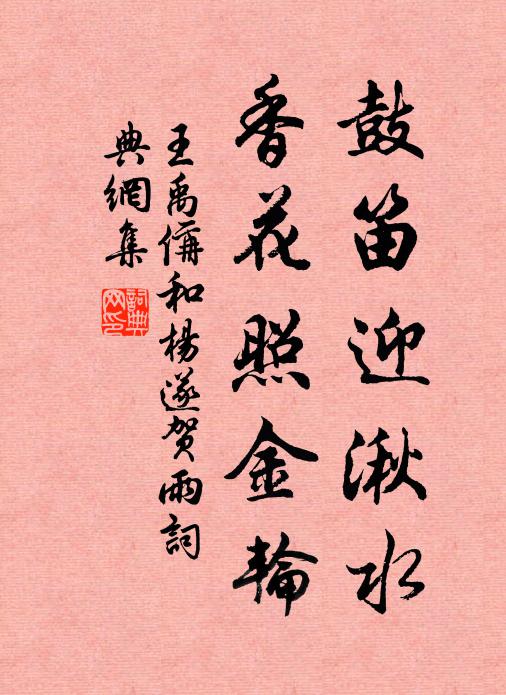 鼓笛迎湫水
香花照金輪
王禹偁和楊遂賀雨詞
典網集
詞典網印